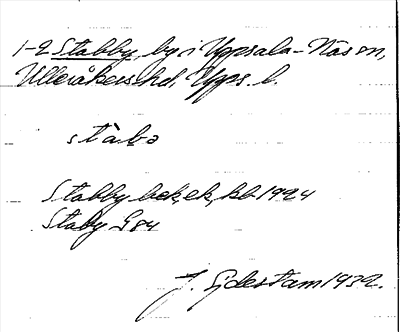 1-2 Stabby, by i Uppsala-Näs sn,
Ulleråkers hd, Upps. l.
stàbo
Stabby bek, ek, kb 1924
Staby G 84
J. Sjdestam 1932.